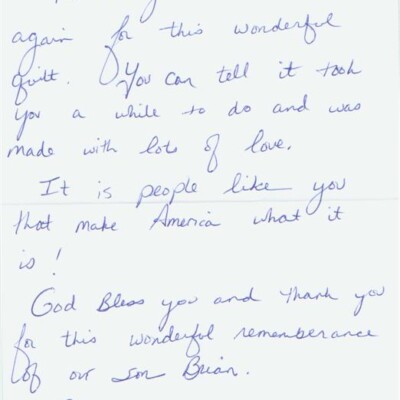 again for this wonderful
quilt. You can tell it took
you a while to do and was
made with lots of love.
It is people like you
that make America what it
is!
God Bless you and thank you
for this wonderful rememberance
of our son Brian.